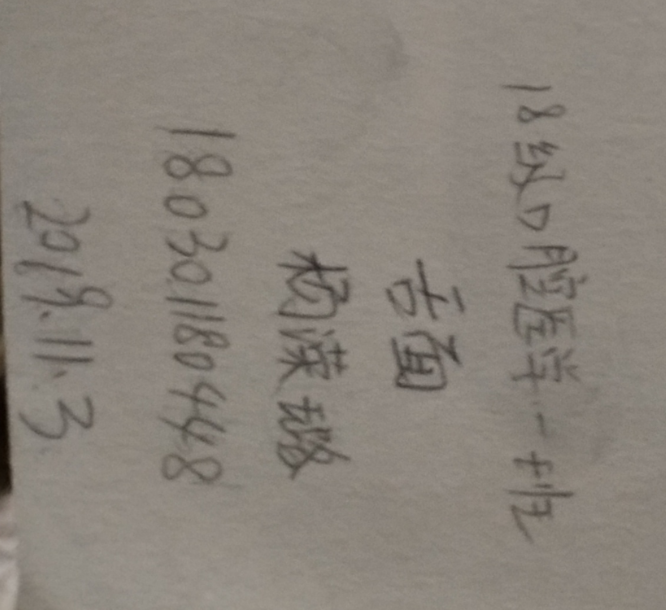 18级口腔医学一班
舌面
杨溪璐
180301180448
2019.11.3